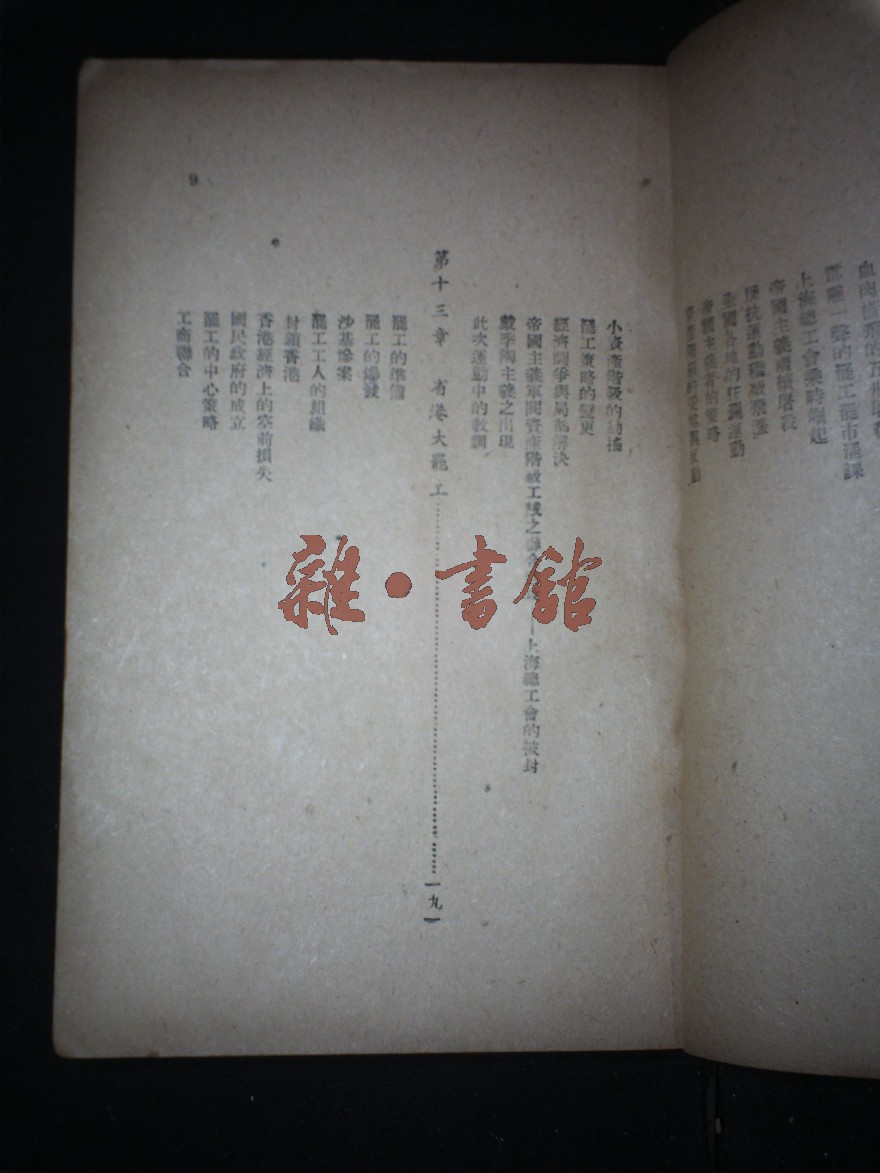 上海總工會乘時崛起
帝國主義積極屠殺
抵抗運動繼續飛漲
全國各地的狂瀾運動
帝國主義者的策略
小資產階級的動搖
罷工策略的變更
經濟鬪爭與局部解決
帝國主義軍閥資產階級工賊之聯合 上海總工會的被封
戴季陶主義之出現
此次運動中的教訓
第十三章 省港大罷工……一九一
罷工的準備
罷工的爆發
沙基慘案
罷工工人的組織
封鎖香港
香港經濟上的空前損失
國民政府的成立
罷工的中心策略
工商聯合
9
雜·書館